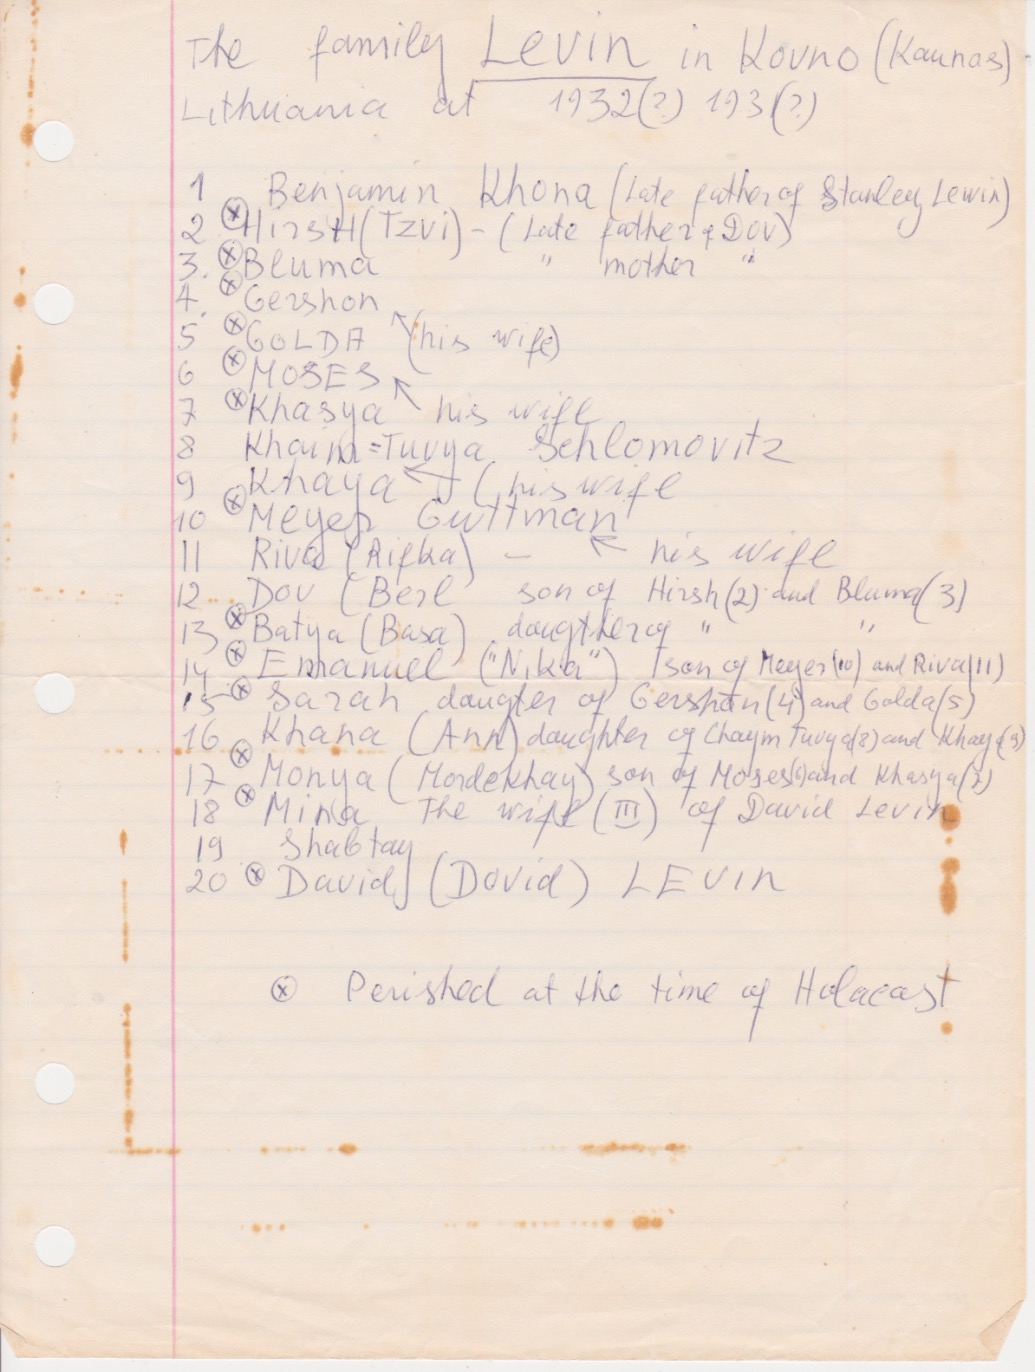 The family Levin in Kovno (Kaunas)
Lithuania at 1932(?) 193(?)
1 Benjamin Khona (Late father of Stanley Lewin)
2 ⓧ Hirsh (Tzvi) - (Late father of Dov)
3. ⓧ Bluma " mother "
4. ⓧ Gershon
5 ⓧ GOLDA ↖ (his wife)
6 ⓧ MOSES
7 ⓧ Khasya ↖ his wife
8 Khaim=Tuvya Schlomovitz
9 Khaya ← (his wife
10 ⓧ Meyer Guttman
11 Riva (Rifka) - ↖ his wife
12 Dov (Berl son of Hirsh(2) and Bluma(3)
13 ⓧ Batya (Basa) daugther of " "
14 ⓧ Emanuel ("Nika") (son of Meyer(10) and Riva(11)
15 ⓧ Sarah daugter of Gershon(4) and Golda(5)
16 Khana (Ann) daughter of Chaym Tuvya(8) and Khaya(9)
17 ⓧ Monya (Mordekhay) son of Moses(6) and Khasya(7)
18 ⓧ Mina The wife (III) of David Levin
19 Shabtay
20 ⓧ David (Dovid) LEVIN
ⓧ Perished at the time of Holacast